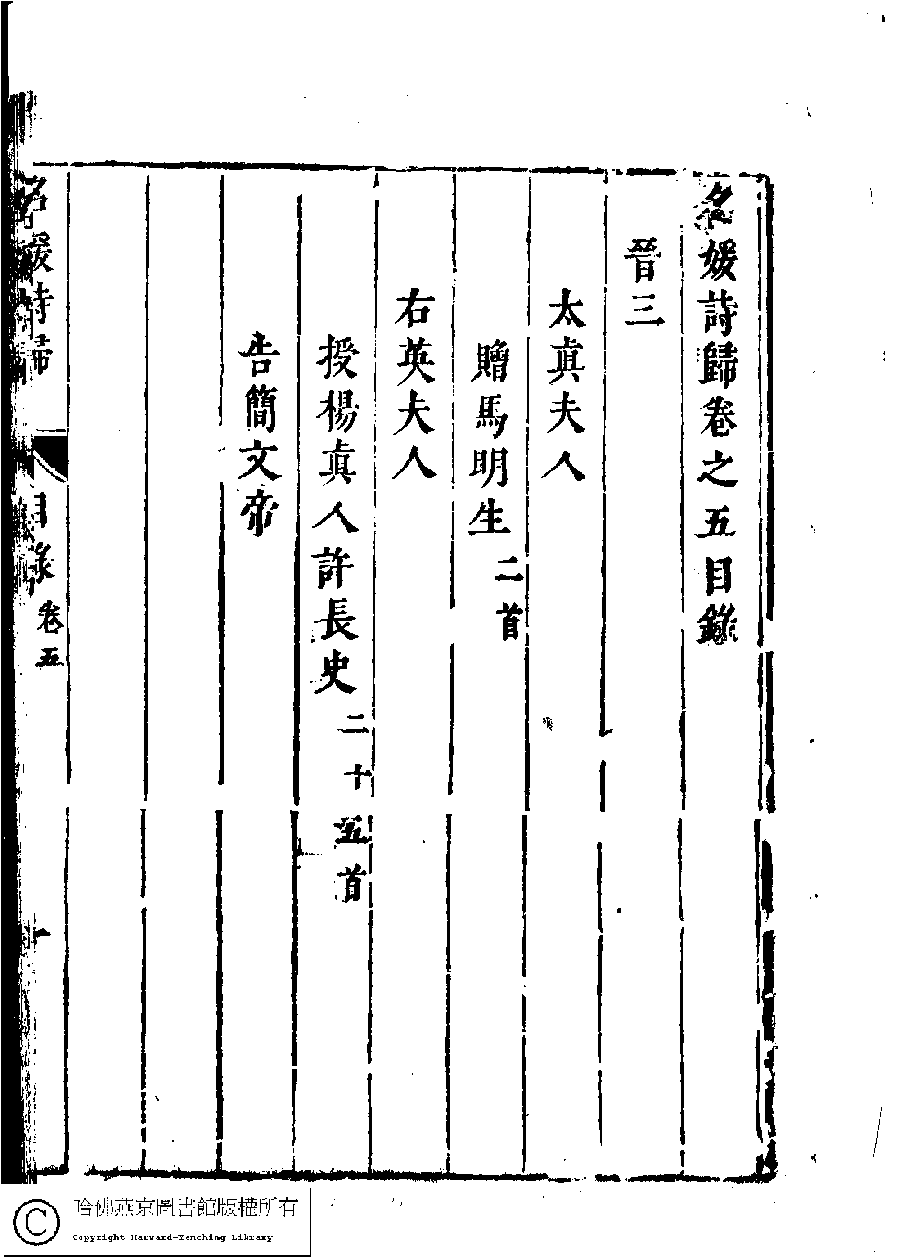 名媛詩歸卷之五目錄
晉三
太眞夫人
贈馬明生二首
右英夫人
授楊眞人許長史二十五首
告簡文帝
名媛詩歸 目錄卷五 一
哈佛燕京圖書館版權所有
Copyright Harvard-Yenching Library